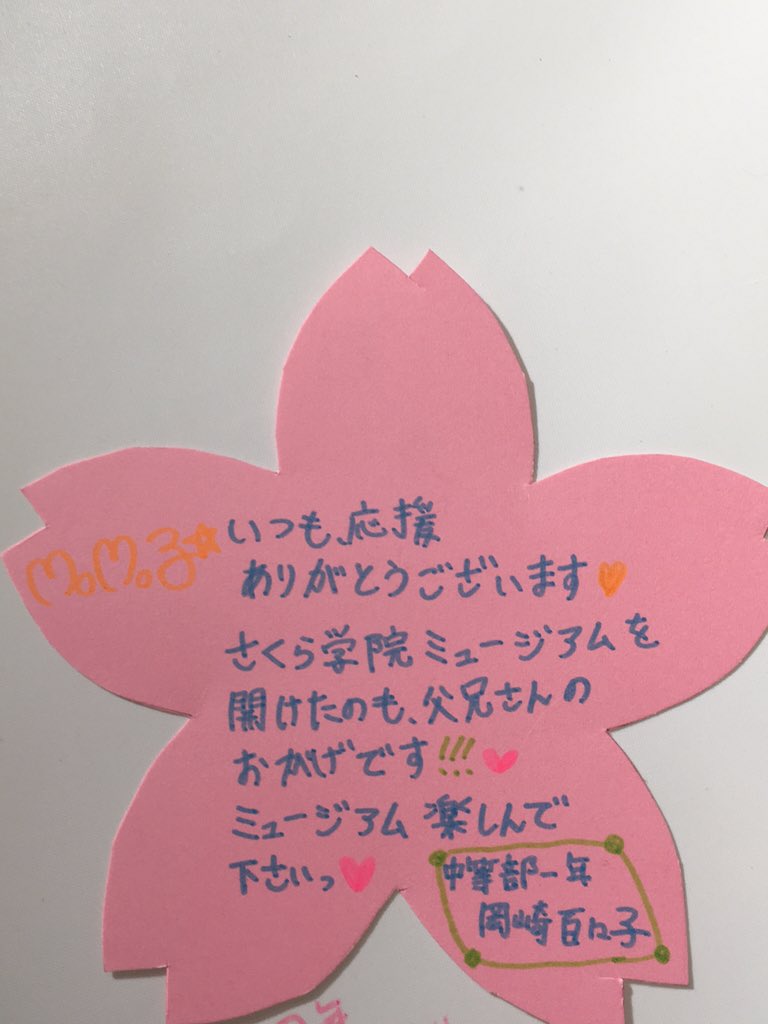 MoMo子☆
いつも、応援
ありがとうございます
さくら学院ミュージアムを
開けたのも、父兄さんの
おかげです!!!
ミュージアム 楽しんで
下さいっ
中等部一年
岡崎百々子